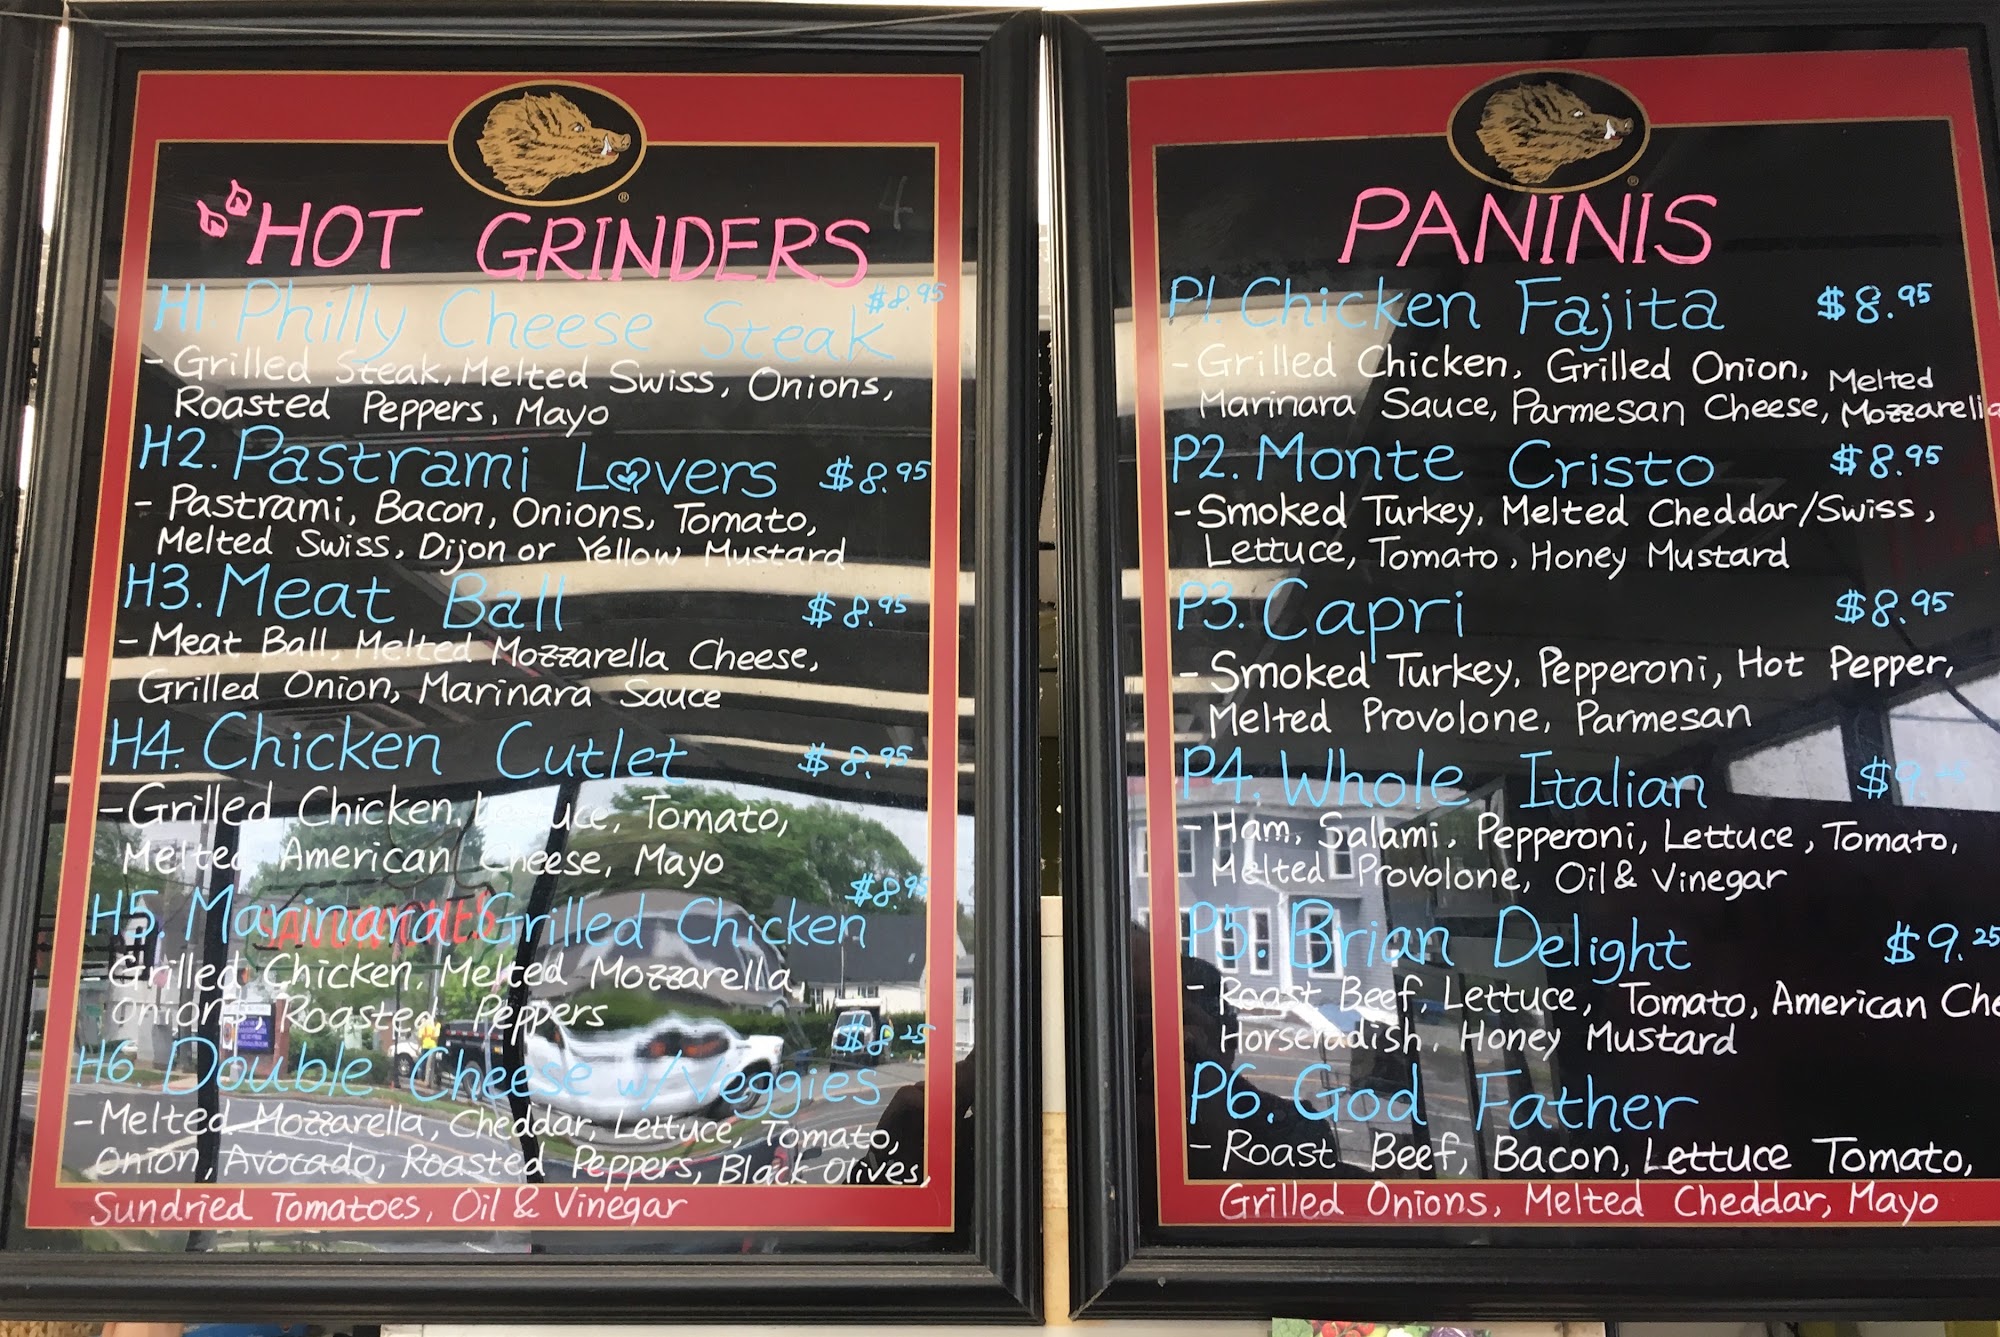 HOT GRINDERS
H1. Philly Cheese Steak $8.95
- Grilled Steak, Melted Swiss, Onions,
Roasted Peppers, Mayo
H2. Pastrami Lovers $8.95
- Pastrami, Bacon, Onions, Tomato,
Melted Swiss, Dijon or Yellow Mustard
H3. Meat Ball $8.95
- Meat Ball, Melted Mozzarella Cheese,
Grilled Onion, Marinara Sauce
H4. Chicken Cutlet $8.95
- Grilled Chicken, Lettuce, Tomato,
Melted American Cheese, Mayo
H5. Marinara Grilled Chicken $8.95
Grilled Chicken, Melted Mozzarella,
Onions, Roasted Peppers
H6. Double Cheese w/Veggies $8.25
- Melted Mozzarella, Cheddar, Lettuce, Tomato,
Onion, Avocado, Roasted Peppers, Black Olives,
Sundried Tomatoes, Oil & Vinegar
PANINIS
P1. Chicken Fajita $8.95
- Grilled Chicken, Grilled Onion, Melted
Marinara Sauce, Parmesan Cheese, Mozzarella
P2. Monte Cristo $8.95
- Smoked Turkey, Melted Cheddar/Swiss,
Lettuce, Tomato, Honey Mustard
P3. Capri $8.95
- Smoked Turkey, Pepperoni, Hot Pepper,
Melted Provolone, Parmesan
P4. Whole Italian
- Ham, Salami, Pepperoni, Lettuce, Tomato,
Melted Provolone, Oil & Vinegar
P5. Brian Delight $9.25
- Roast Beef, Lettuce, Tomato, American Che
Horseradish, Honey Mustard
P6. God Father
- Roast Beef, Bacon, Lettuce Tomato,
Grilled Onions, Melted Cheddar, Mayo